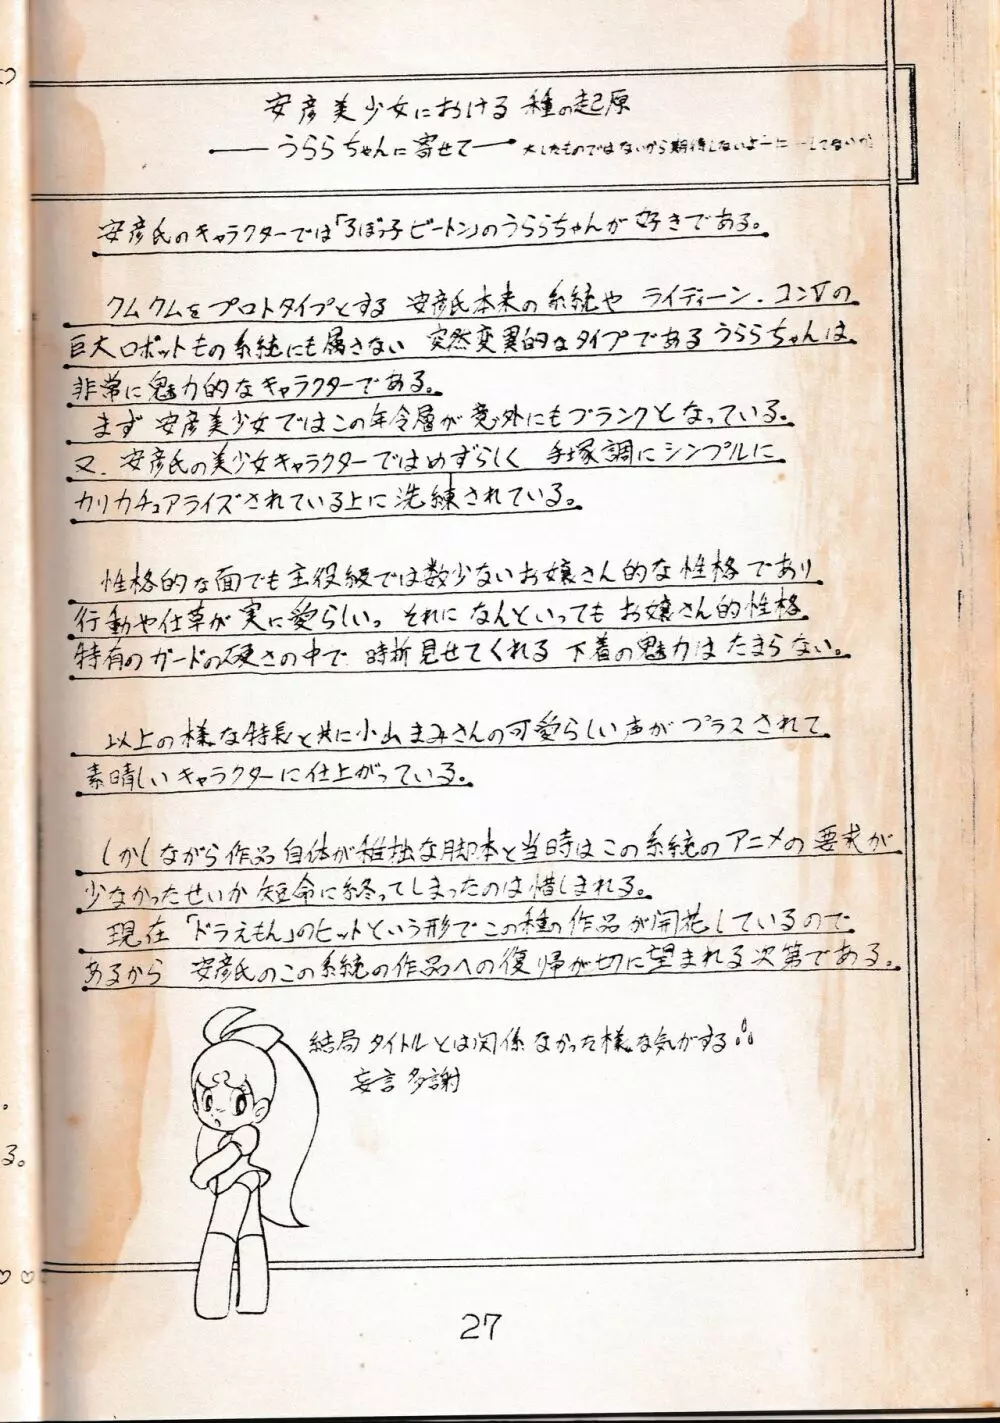 安彦美少女における 種の起原
うららちゃんに寄せて 大したものではないから期待しないよーに
安彦氏のキャラクターでは「ろぼっ子ビートン」のうららちゃんが好きである。
クムクムをプロトタイプとする 安彦氏本来の系統や ライディーン、コンVの
巨大ロボットもの系統にも属さない 突然変異的なタイプであるうららちゃんは、
非常に魅力的なキャラクターである。
まず 安彦美少女ではこの年令層が意外にもブランクとなっている。
又、安彦氏の美少女キャラクターではめずらしく 手塚調にシンプルに
カリカチュアライズされている上に洗練されている。
性格的な面でも主役級では数少ないお嬢さん的な性格であり
行動や仕草が実に愛らしい。それになんといってもお嬢さん的性格
特有のガードの硬さの中で 時折見せてくれる 下着の魅力はたまらない。
以上の様な特長と共に小山まみさんの可愛らしい声がプラスされて
素晴しいキャラクターに仕上がっている。
しかしながら作品自体が稚拙な脚本と当時はこの系統のアニメの要求が
少なかったせいか短命に終ってしまったのは惜しまれる。
現在「ドラえもん」のヒットという形でこの種の作品が開花しているので
あるから 安彦氏のこの系統の作品への復帰が切に望まれる次第である。
結局タイトルとは関係なかった様な気がする
妄言多謝
27
る。